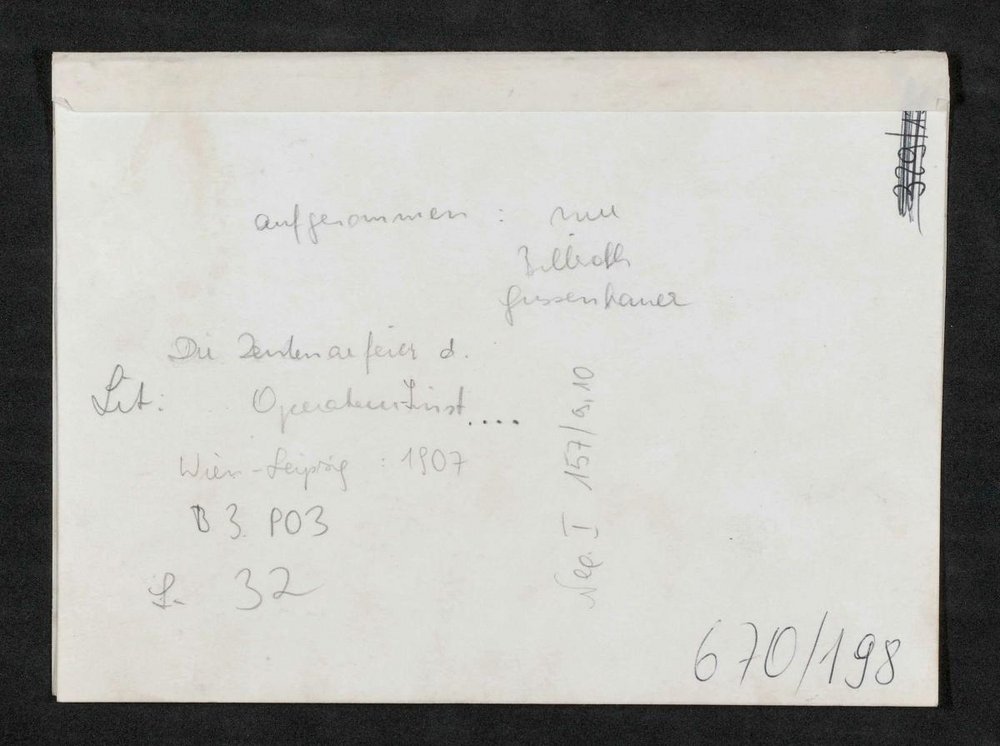 aufgenommen : nur
Billroth
Gussenbauer
Die Zentenarfeier d.
Lit: Operateur Inst....
Wien - Leipzig : 1907
B 3. PO3
S. 32
Neg. I 157/9,10
670/198